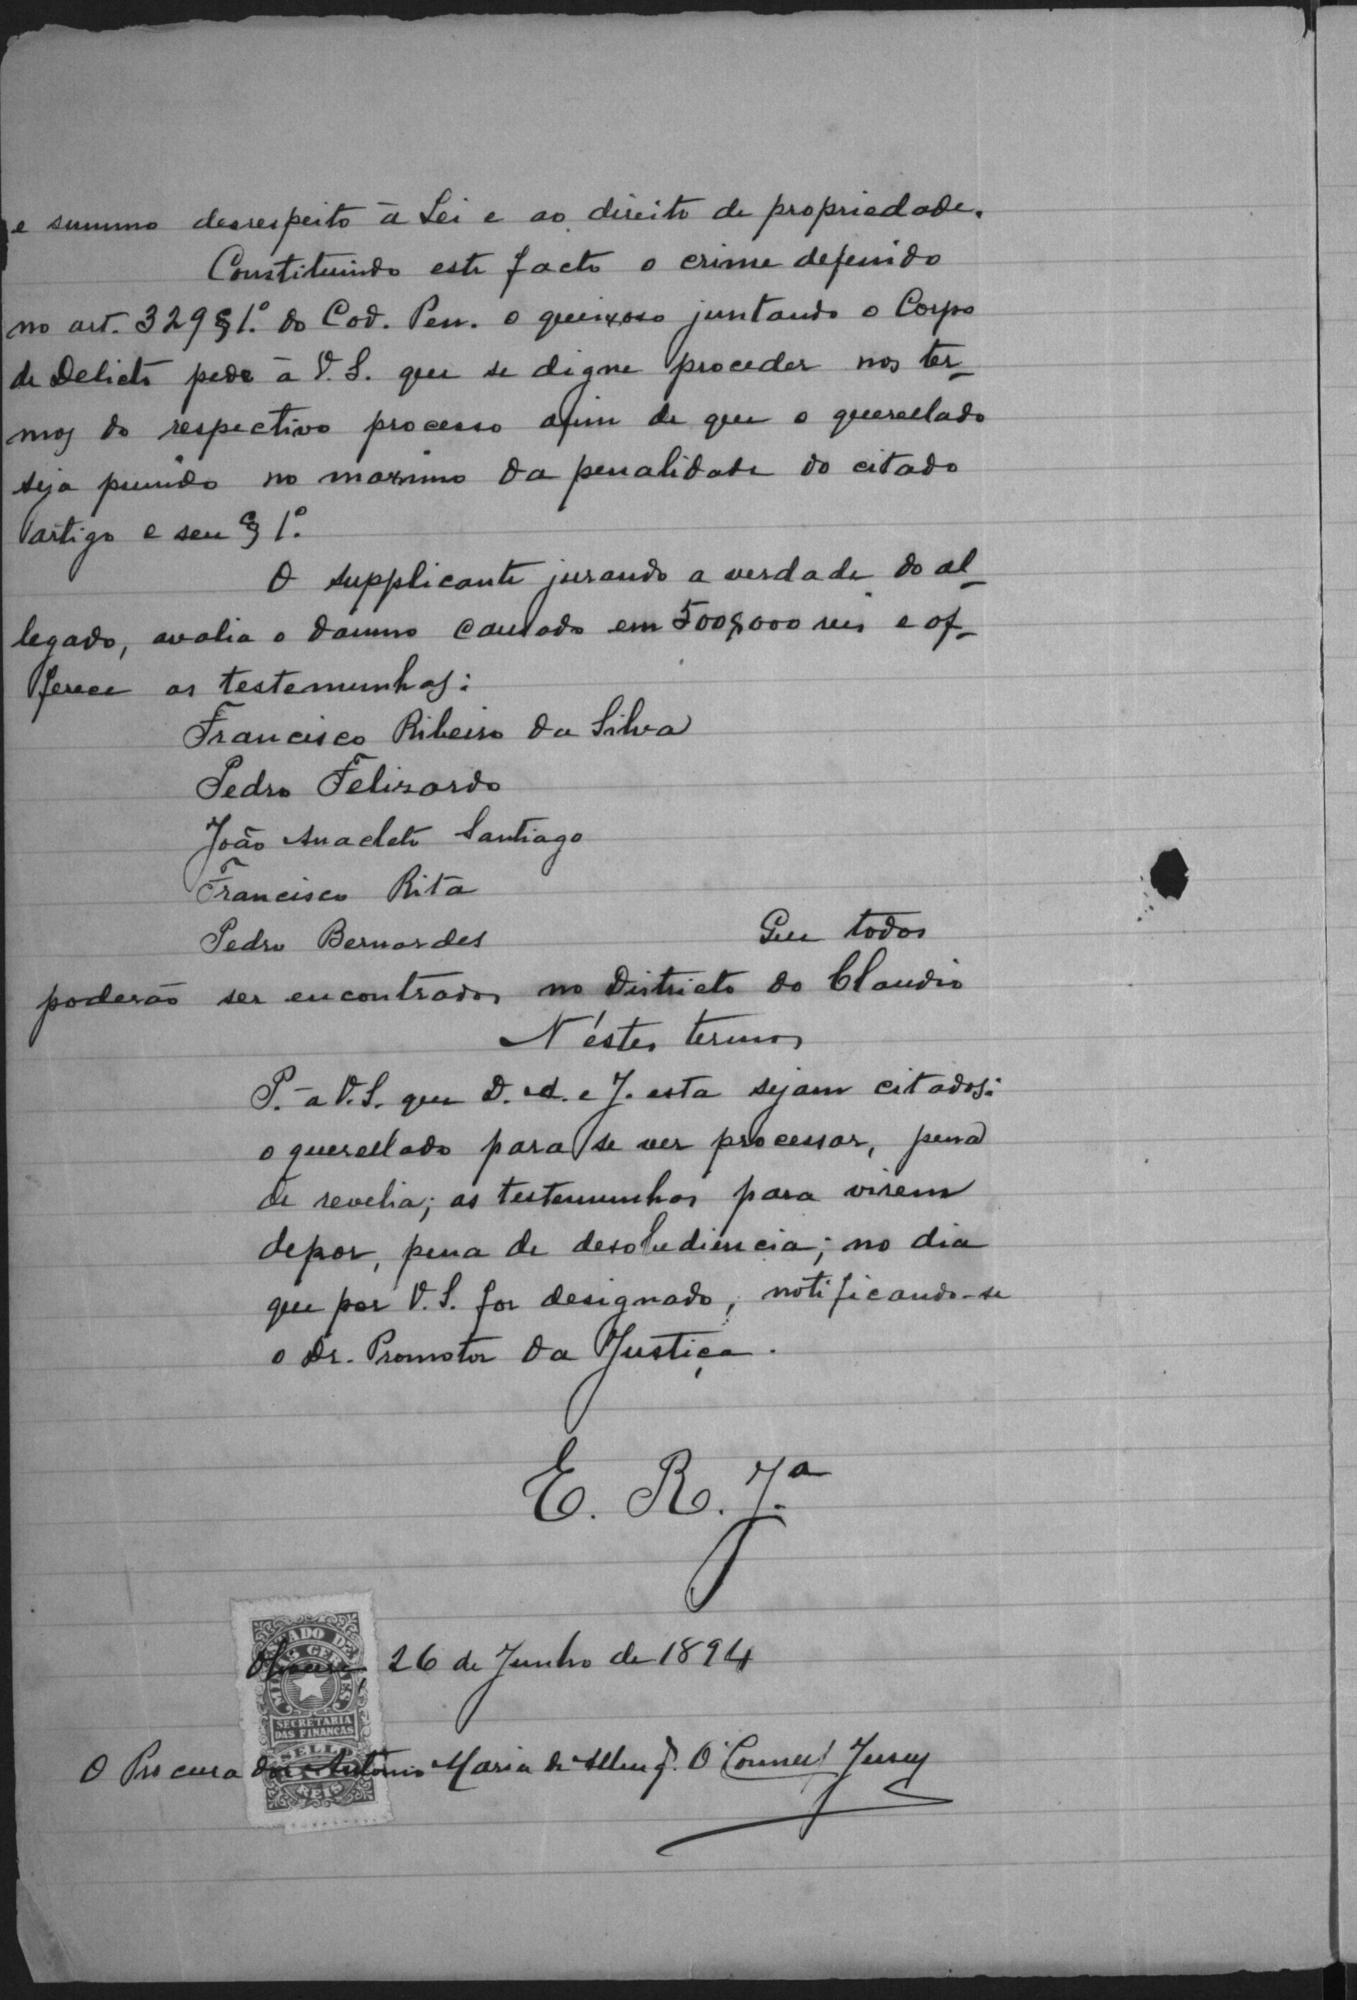 e summo desrespeito à Lei e ao direito de propriedade.
Constituindo este facto o crime defenido
no art. 329 § 1.º do Cod. Pen. o queixoso juntando o Corpo
de Delicto pede à V. S. que se digne proceder nos ter-
mos do respectivo processo afim de que o querellado
seja punido no maximo da penalidade do citado
artigo e seu § 1.º
O supplicante jurando a verdade do al-
legado, avalia o damno causado em 500$000 reis e of-
ferece as testemunhas:
Francisco Ribeiro da Silva
Pedro Felizardo
João Anacleto Santiago
Francisco Rita
Pedro Bernardes
Que todos
poderão ser encontrados no Districto do Claudio
N'éstes termos
P. à V. S. que D. A. e J. esta sejam citados:
o querellado para se ver processar, pena
de revelia; as testemunhas para virem
depor, pena de desobediencia; no dia
que por V. S. for designado, notificando-se
o Dr. Promotor da Justiça.
E. R. J.ª
26 de Junho de 1894
O Procurador Antonio Maria de O'Connell Jersey
ESTADO DE
MINAS GERAES
SECRETARIA
DAS FINANÇAS
SELLO
REIS